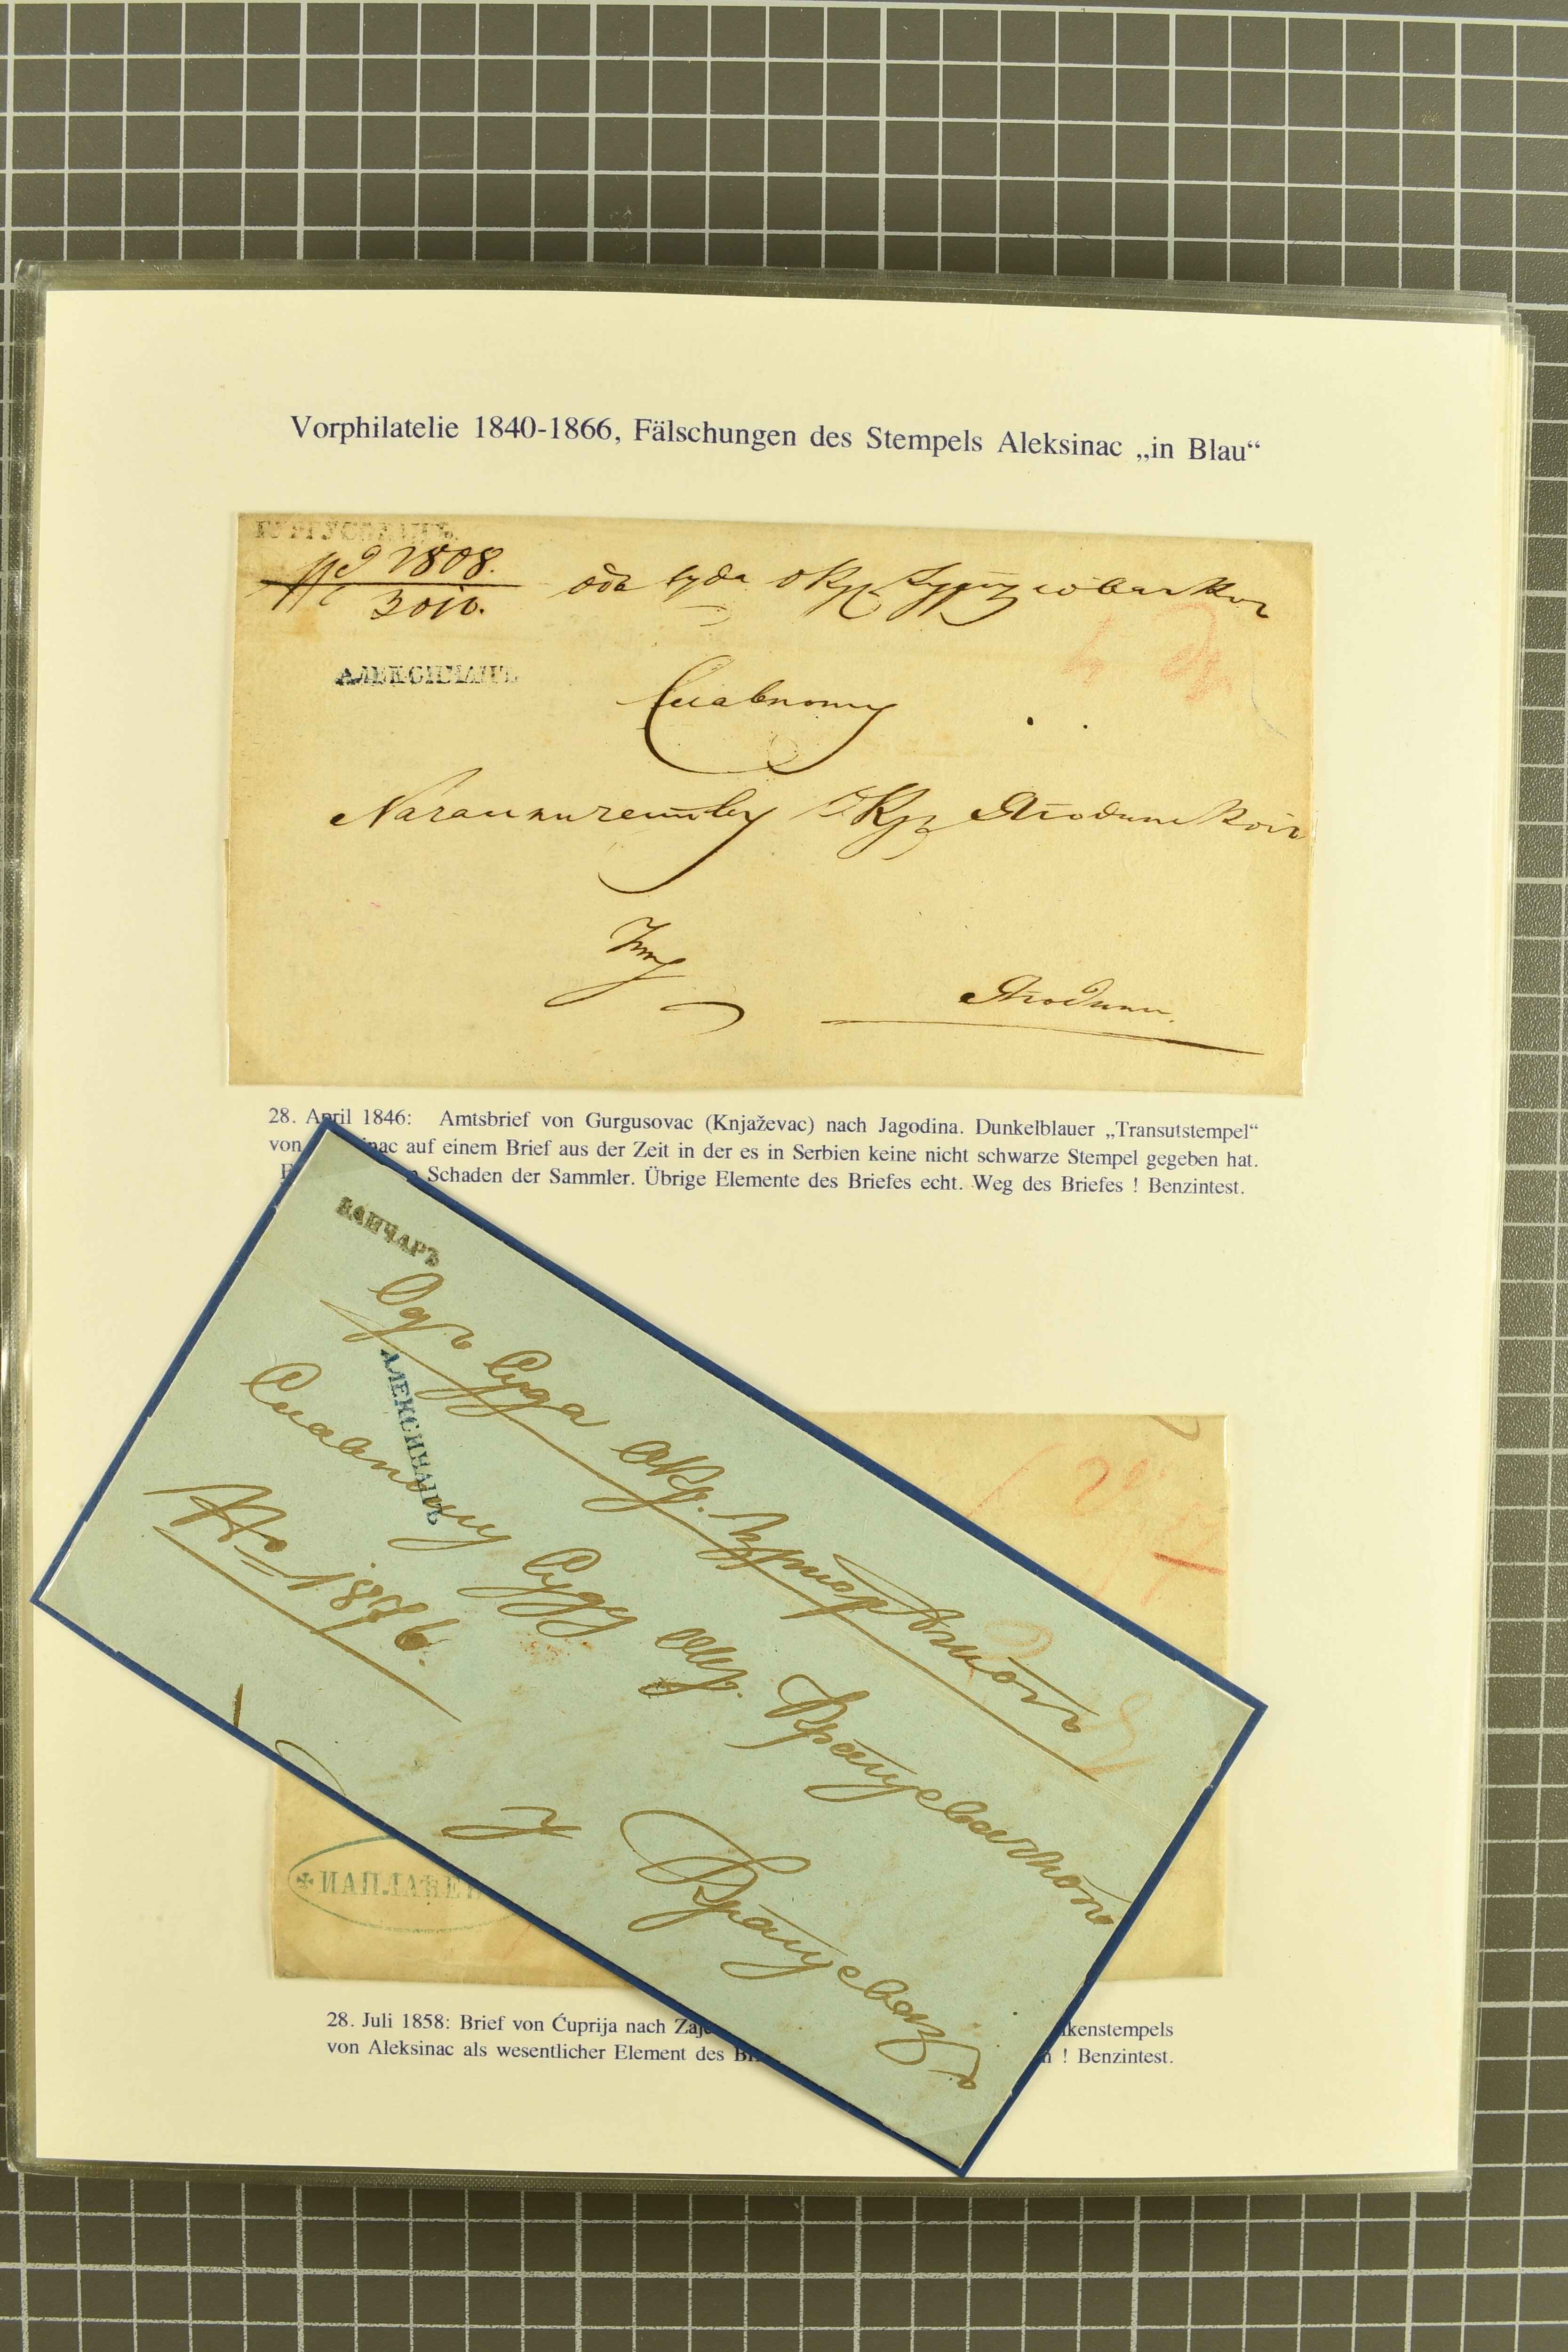 Vorphilatelie 1840-1866, Fälschungen des Stempels Aleksinac „in Blau“
ГУРГУСОВАЦЪ.
№ 1808.
АЛЕКСИНАЦЪ
Славному
Начаничеству Окр. Ягодинског
у
Ягодини.
28. April 1846: Amtsbrief von Gurgusovac (Knjaževac) nach Jagodina. Dunkelblauer „Transutstempel“
von inac auf einem Brief aus der Zeit in der es in Serbien keine nicht schwarze Stempel gegeben hat.
Schaden der Sammler. Übrige Elemente des Briefes echt. Weg des Briefes ! Benzintest.
ВАНЧАРЪ
Одъ Суда Окр.
АЛЕКСИНАЦЪ
Славному Суду Окр. Крушевачком
№ 1876.
у Крушевацъ
НАПЛАЋЕ
28. Juli 1858: Brief von Ćuprija nach Zaj lkenstempels
von Aleksinac als wesentlicher Element des B ! Benzintest.